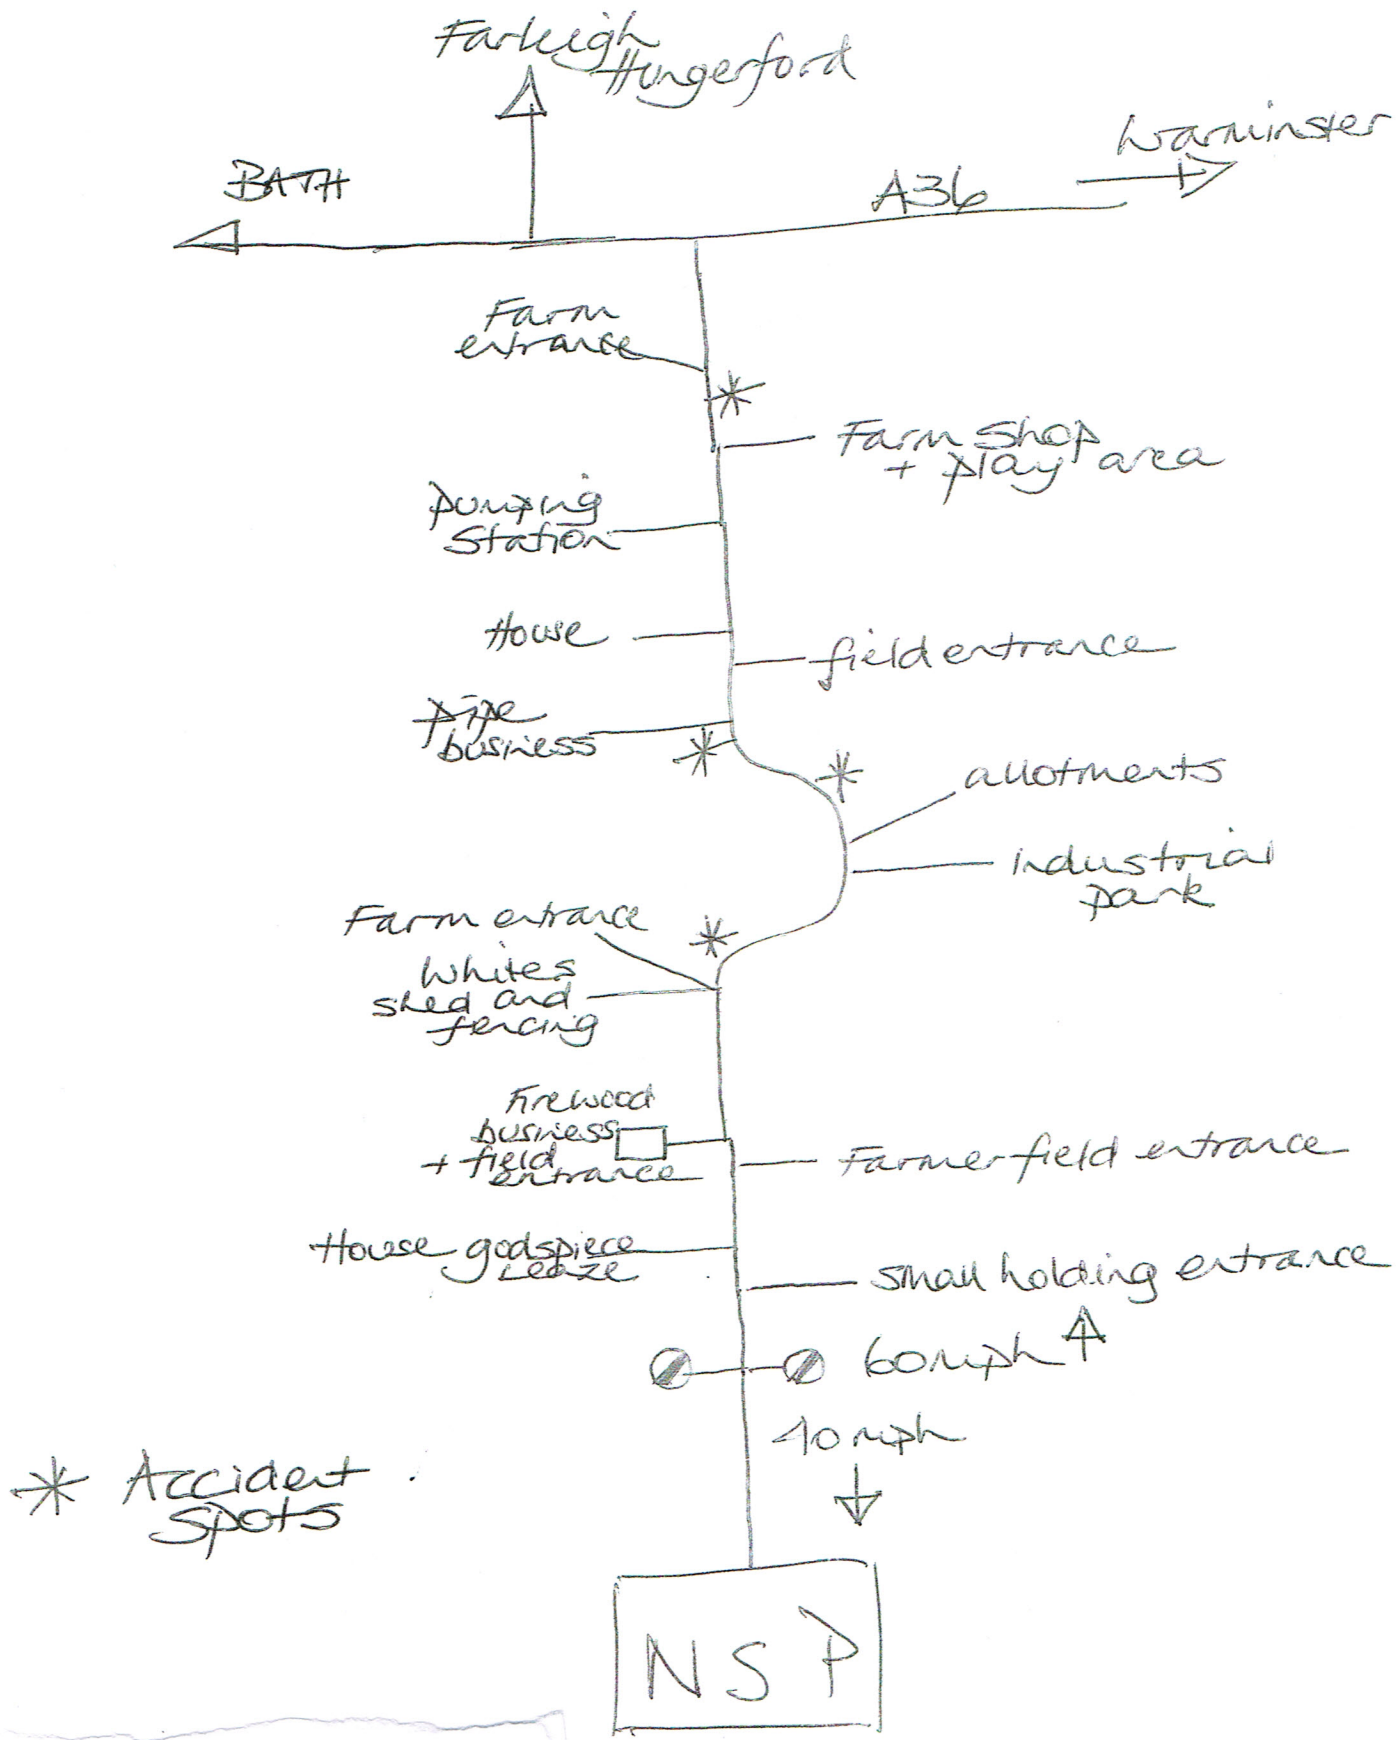 Farleigh
Hungerford
Warminster
BATH
A36
Farm
entrance
Farm shop
+ play area
Pumping
Station
House
field entrance
pipe
business
allotments
industrial
park
Farm entrance
Whites
shed and
fencing
Firewood
business
+ field
entrance
Farmer field entrance
House godspiece
leaze
small holding entrance
60 mph
40 mph
* Accident
spots
NSP